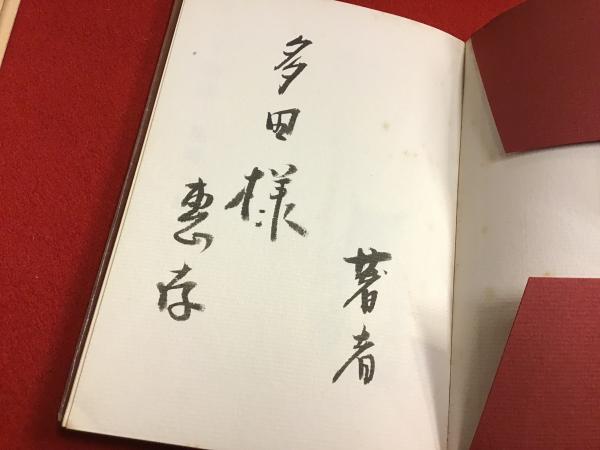 多田様
恵存
著者